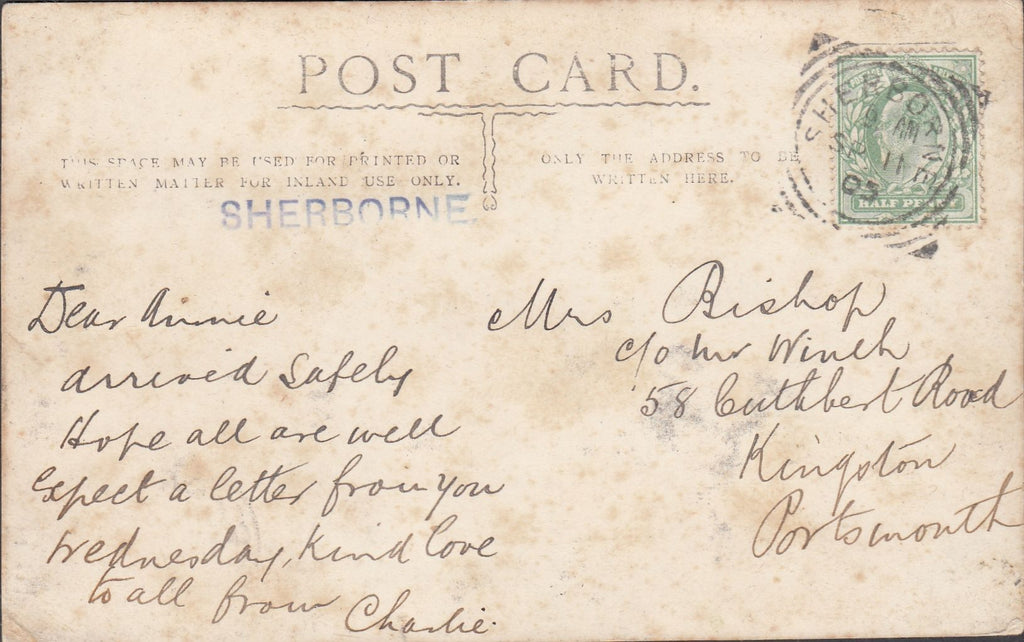 POST CARD.
THIS SPACE MAY BE USED FOR PRINTED OR
WRITTEN MATTER FOR INLAND USE ONLY.
ONLY THE ADDRESS TO BE
WRITTEN HERE.
SHERBORNE
SHERBORNE
AM
SP 11
03
HALF PENNY
Dear Annie
arrived safely
Hope all are well
Expect a letter from you
Wednesday, Kind love
to all from Charlie.
Mrs Bishop
c/o Mr Winch
58 Cuthbert Road
Kingston
Portsmouth